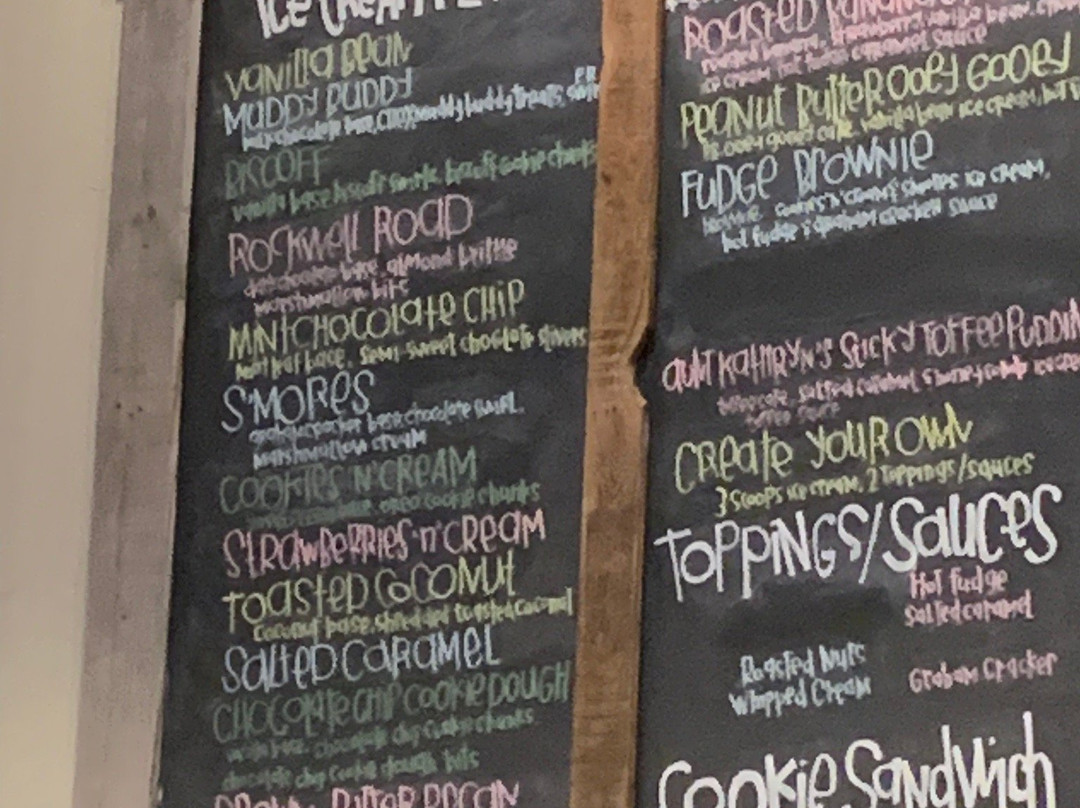 Ice Cream
Vanilla Bean
Muddy Buddy
milk chocolate base, muddy buddy treats,
Biscoff
vanilla base, biscoff swirls, biscoff cookie chunks
Rockwell Road
dark chocolate base, almond brittle
marshmallow bits
Mint Chocolate Chip
mint leaf base, semi-sweet chocolate slivers
S'mores
graham cracker base, chocolate swirl,
marshmallow cream
Cookies 'n' Cream
oreo cookie chunks
Strawberries 'n' Cream
Toasted Coconut
Coconut base, shredded toasted coconut
Salted Caramel
Chocolate Chip Cookie Dough
chocolate chip cookie chunks
chocolate chip cookie dough bits
Brown Butter Pecan
Roasted Banana
roasted banana, strawberry, vanilla bean
ice cream, hot fudge, caramel sauce
Peanut Butter Ooey Gooey
ooey gooey cake, vanilla bean ice cream, hot
Fudge Brownie
brownie, cookies 'n' cream, s'mores ice cream,
hot fudge, graham cracker sauce
Aunt Kathryn's Sticky Toffee Puddin
toffee cake, salted caramel, honeycomb ice cream
toffee sauce
Create Your Own
3 Scoops ice cream, 2 toppings/sauces
Toppings/Sauces
Hot fudge
Salted caramel
Roasted Nuts
Whipped Cream
Graham Cracker
Cookie Sandwich